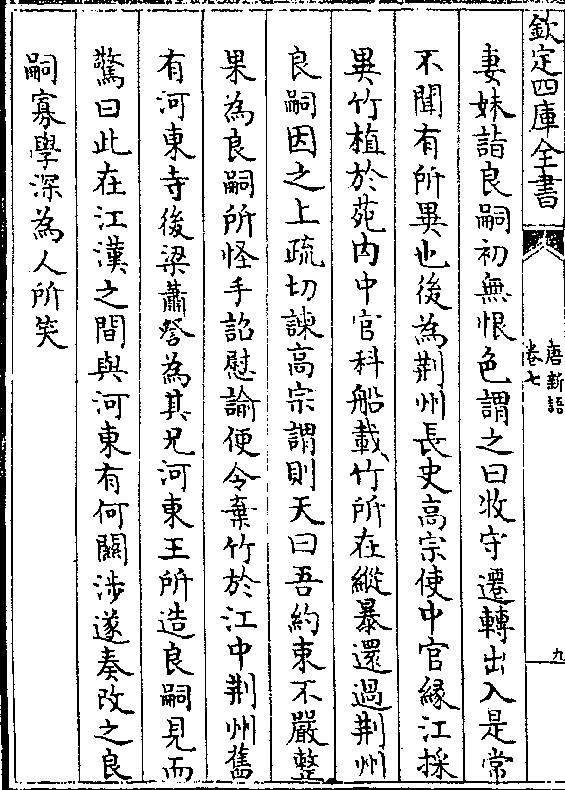 欽定四庫全書
唐新語
卷七
九
妻妹詣良嗣初無恨色謂之曰牧守遷轉出入是常
不聞有所異也後為荆州長史高宗使中官緣江採
異竹植於苑内中官科船載竹所在縱暴還過荆州
良嗣因之上疏切諫高宗謂則天曰吾約束不嚴整
果為良嗣所怪手詔慰諭便令棄竹於江中荆州舊
有河東寺後梁蕭詧為其兄河東王所造良嗣見而
驚曰此在江漢之間與河東有何關涉遂奏改之良
嗣寡學深為人所笑